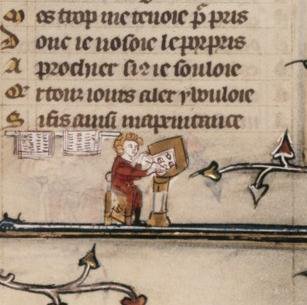 M es trop me tenoie p̃ pris
D onc ie nosoie le porpris
A prochier si 9 ie souloie
Et tour iours aler y vouloie
S i fis ainsi ma penitance